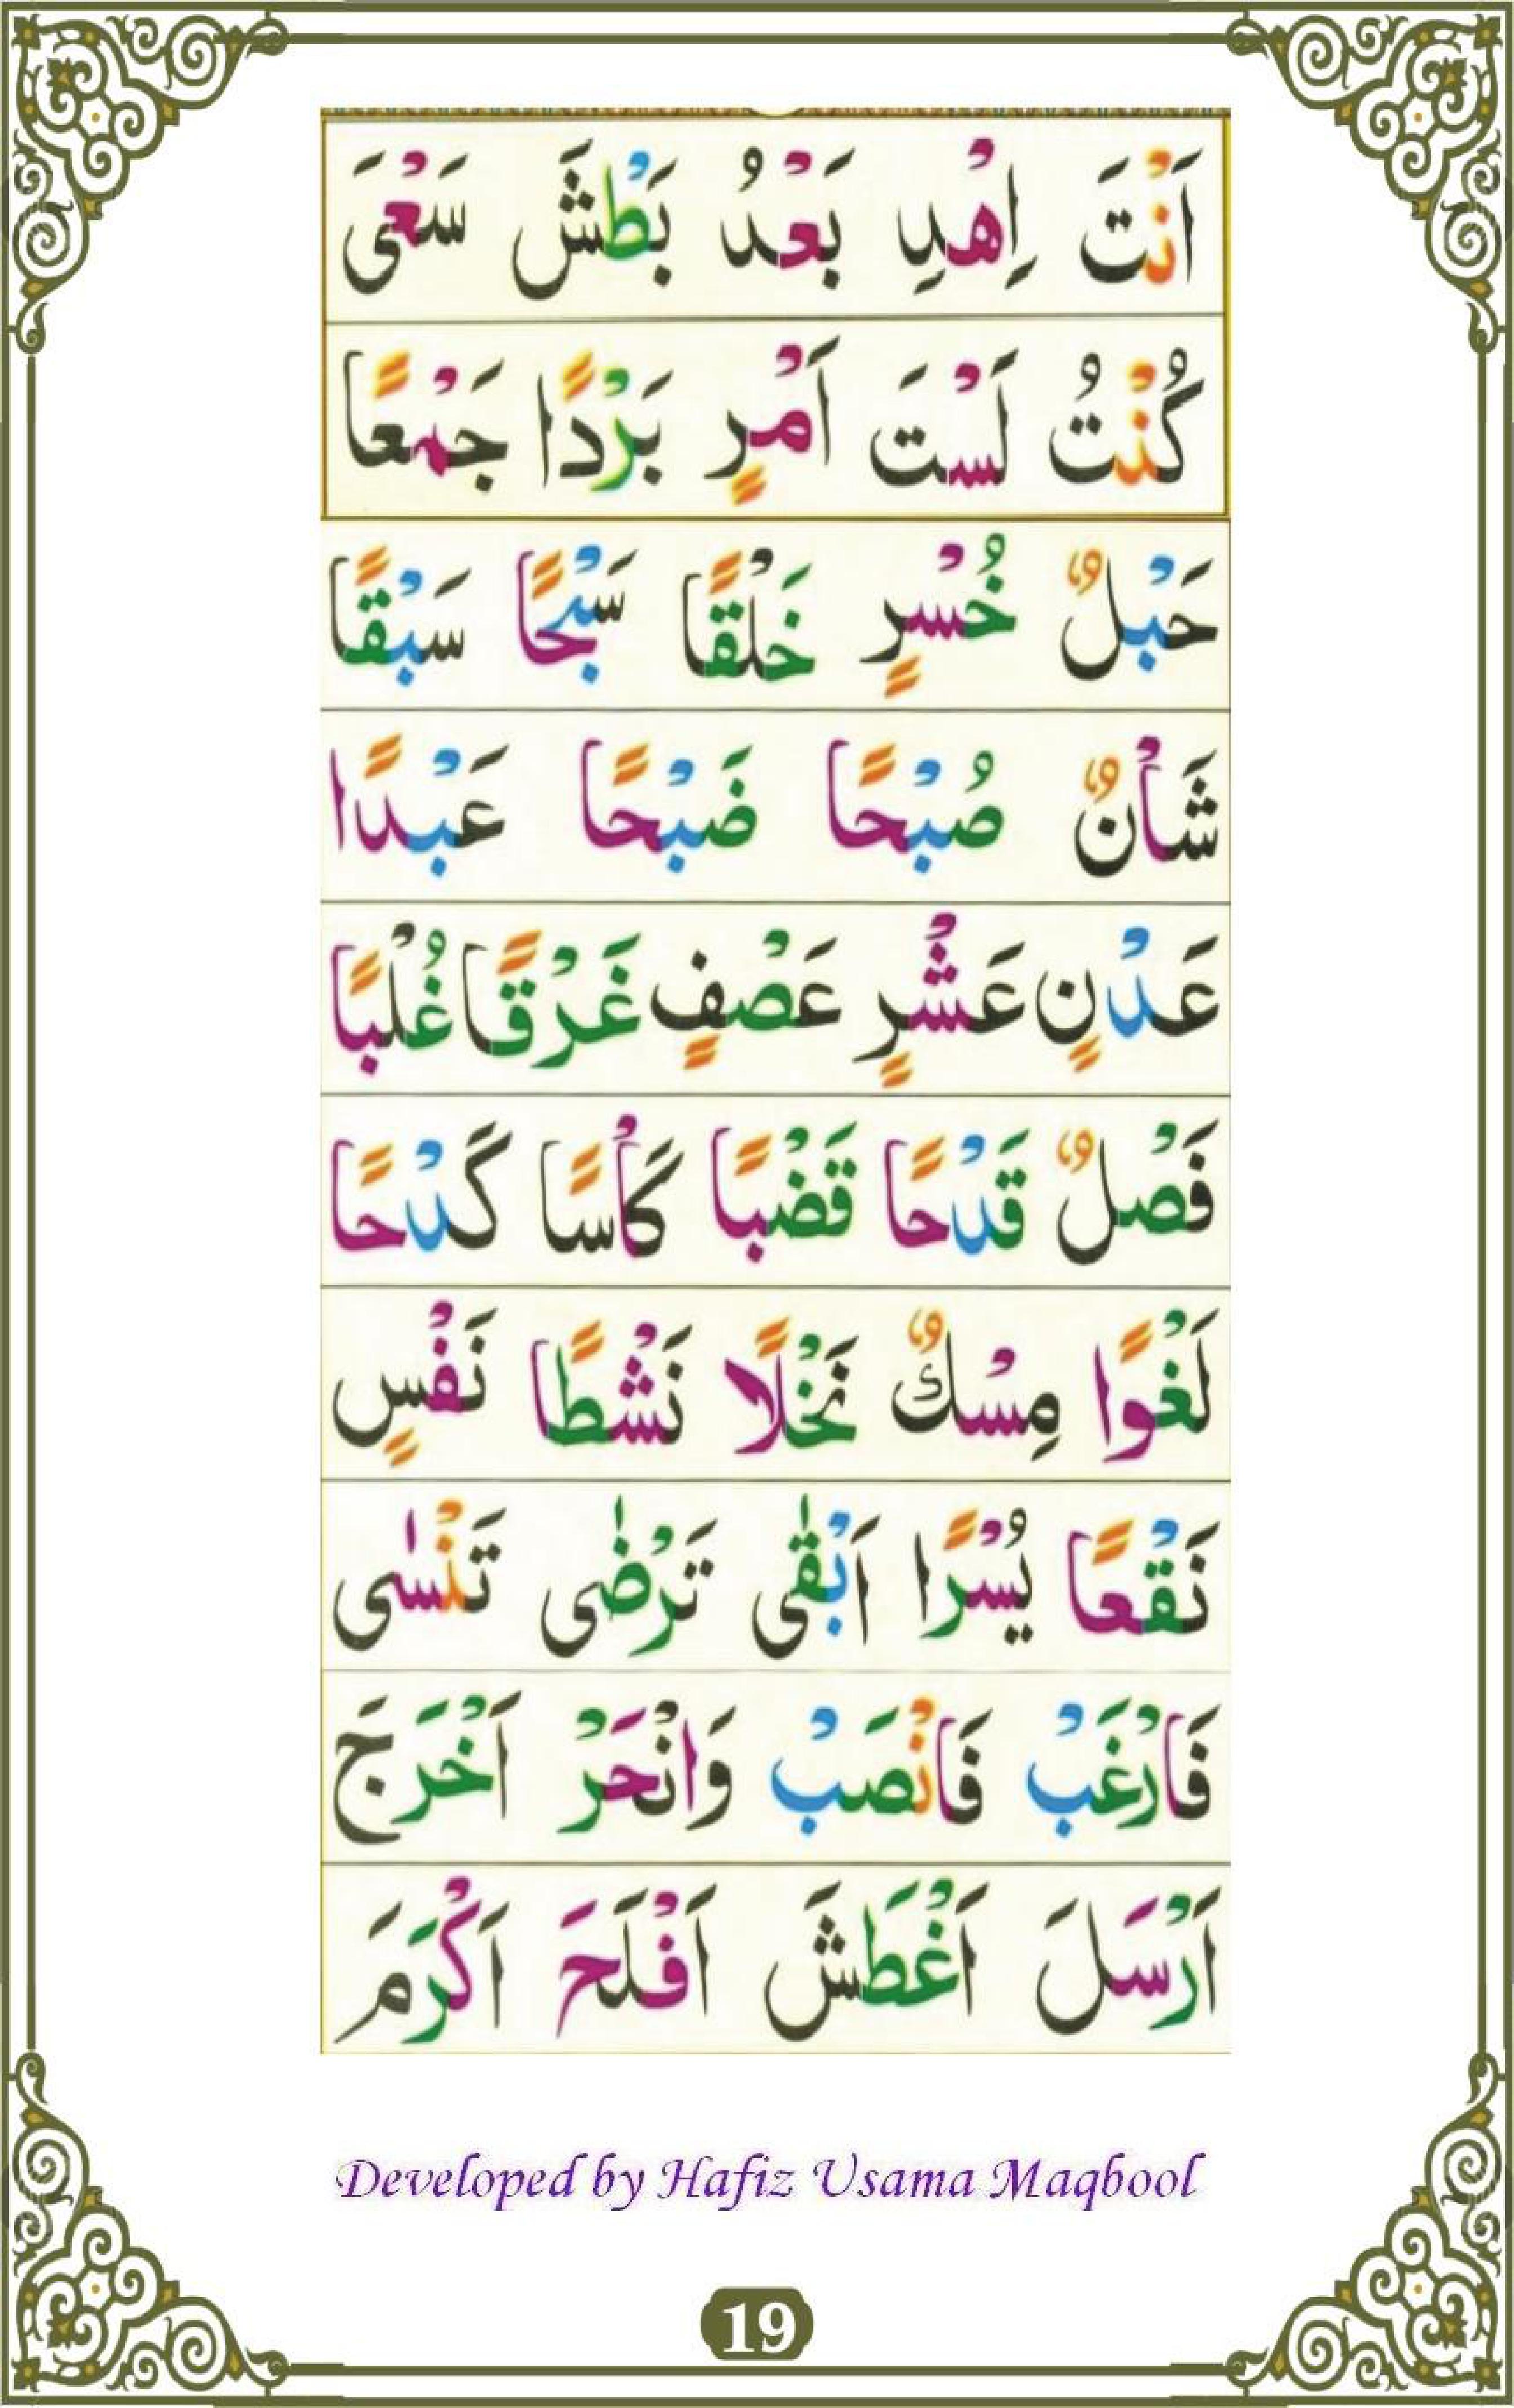 اَنْتَ اِهْدِ بَعْدُ بَطْشَ سَعْیَ
كُنْتُ لَسْتَ اَمْرٍ بَرْدًا جَمْعًا
حَبْلٌ خُسْرٍ خَلْقًا سَبْحًا سَبْقًا
شَأْنٌ صُبْحًا ضَبْحًا عَبْدًا
عَدْنٍ عَشْرٍ عَصْفٍ غَرْقًا غُلْبًا
فَصْلٌ قَدْحًا قَضْبًا كَأْسًا كَدْحًا
لَغْوًا مِسْكٌ نَخْلًا نَشْطًا نَفْسٍ
نَقْعًا يُسْرًا اَبْقٰى تَرْضٰى تَنْسٰى
فَارْغَبْ فَانْصَبْ وَانْحَرْ اَخْرَجَ
اَرْسَلَ اَغْطَشَ اَفْلَحَ اَكْرَمَ
Developed by Hafiz Usama Maqbool
19